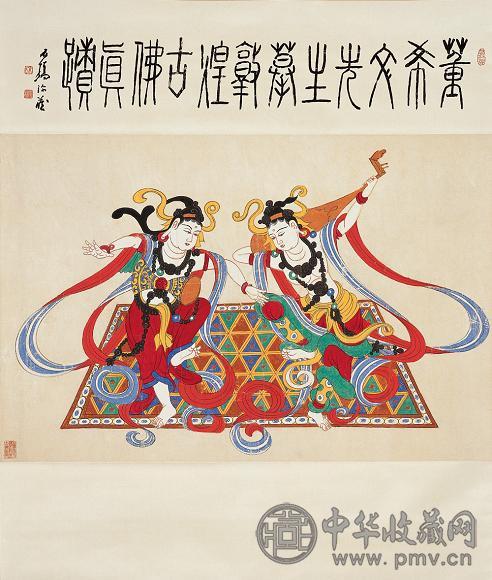 董希文先生摹敦煌古佛眞蹟
中华收藏网
www.pmv.cn